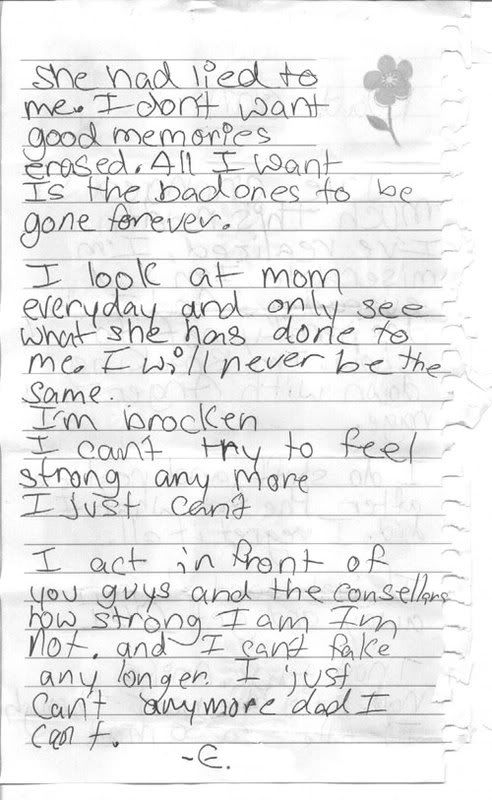 She had lied to
me. I don't want
good memories
erased. All I want
Is the bad ones to be
gone forever.
I look at mom
everyday and only see
what she has done to
me. I will never be the
same.
I'm brocken
I can't try to feel
strong any more
I just can't
I act in front of
you guys and the consellers
how strong I am I'm
Not. and I can't fake
any longer. I just
Can't anymore dad I
can't.
-E.